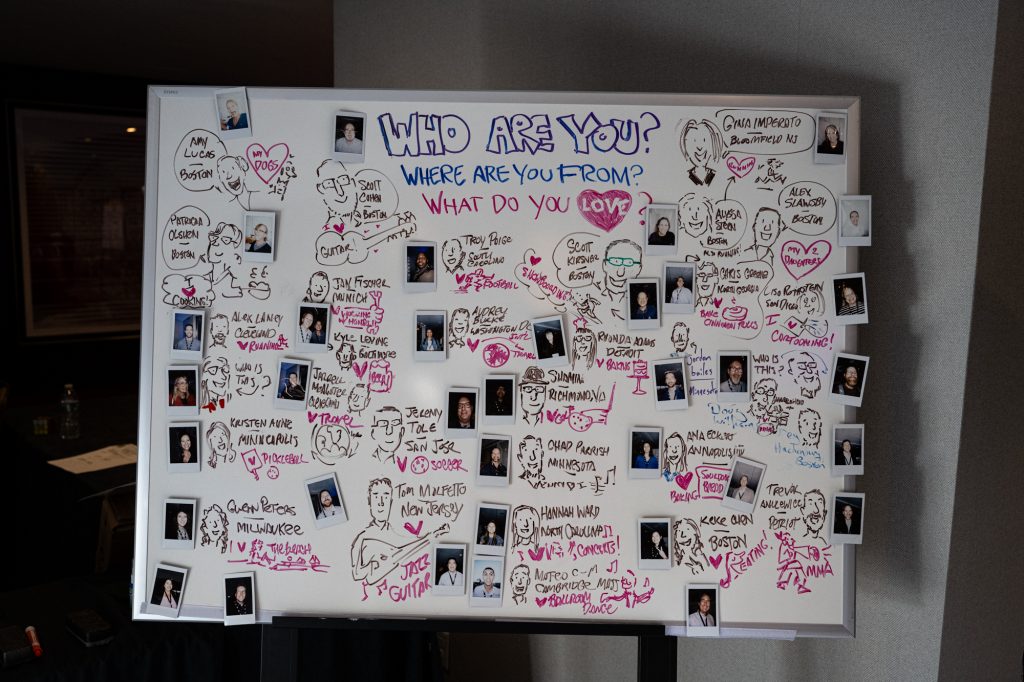 WHO ARE YOU?
WHERE ARE YOU FROM?
WHAT DO YOU LOVE
AMY
LUCAS
BOSTON
MY
DOGS
SCOTT
COHEN
BOSTON
GUITAR
GINA IMPERATO
BLOOMFIELD NJ
RUNNING
PATRICIA
OLSHEN
BOSTON
COOKING!
TROY PAIGE
SOUTH
CAROLINA
FOOTBALL
SCOTT
KIRSNER
BOSTON
SNOWBOARDING!
ALYSSA
BOSTON
ALEX
SLAWSBY
BOSTON
MY 2
DAUGHTERS
JON FISCHER
MUNICH
CHRIS GEORGE
NORTH GEORGIA
BAKE
CINNAMON ROLLS
LISA ROTHSTEIN
SAN DIEGO
I
CARTOONING!
ALEX LANEY
CLEVELAND
RUNNING
KYLE LEVING
BALTIMORE
AUDREY
BURKE
WASHINGTON DC
TRAVEL
RHONDA ADAMS
DETROIT
BAKING
Jordan
bailes
Minnesota
WHO IS
THIS?
WHO IS
THIS?
CLEVELAND
TRAVEL
KRISTEN ANNE
MINNEAPOLIS
PICKLEBALL
JEREMY
TULE
SAN JOSE
SOCCER
RICHMOND, VA
CHAD PARRISH
MINNESOTA
ANA ECKERT
ANNAPOLIS
BAKING
SOURDOUGH
BREAD
Boston
GWEN PETERS
MILWAUKEE
I THE BEACH
TOM MOLFETTO
NEW JERSEY
JAZZ
GUITAR
HANNAH WARD
NORTH CAROLINA
CONCERTS!
MATEO
CAMBRIDGE MASS
BALLROOM
DANCE
KEKE CHEN
BOSTON
EATING!
TREVOR
PATRIOT
MMA